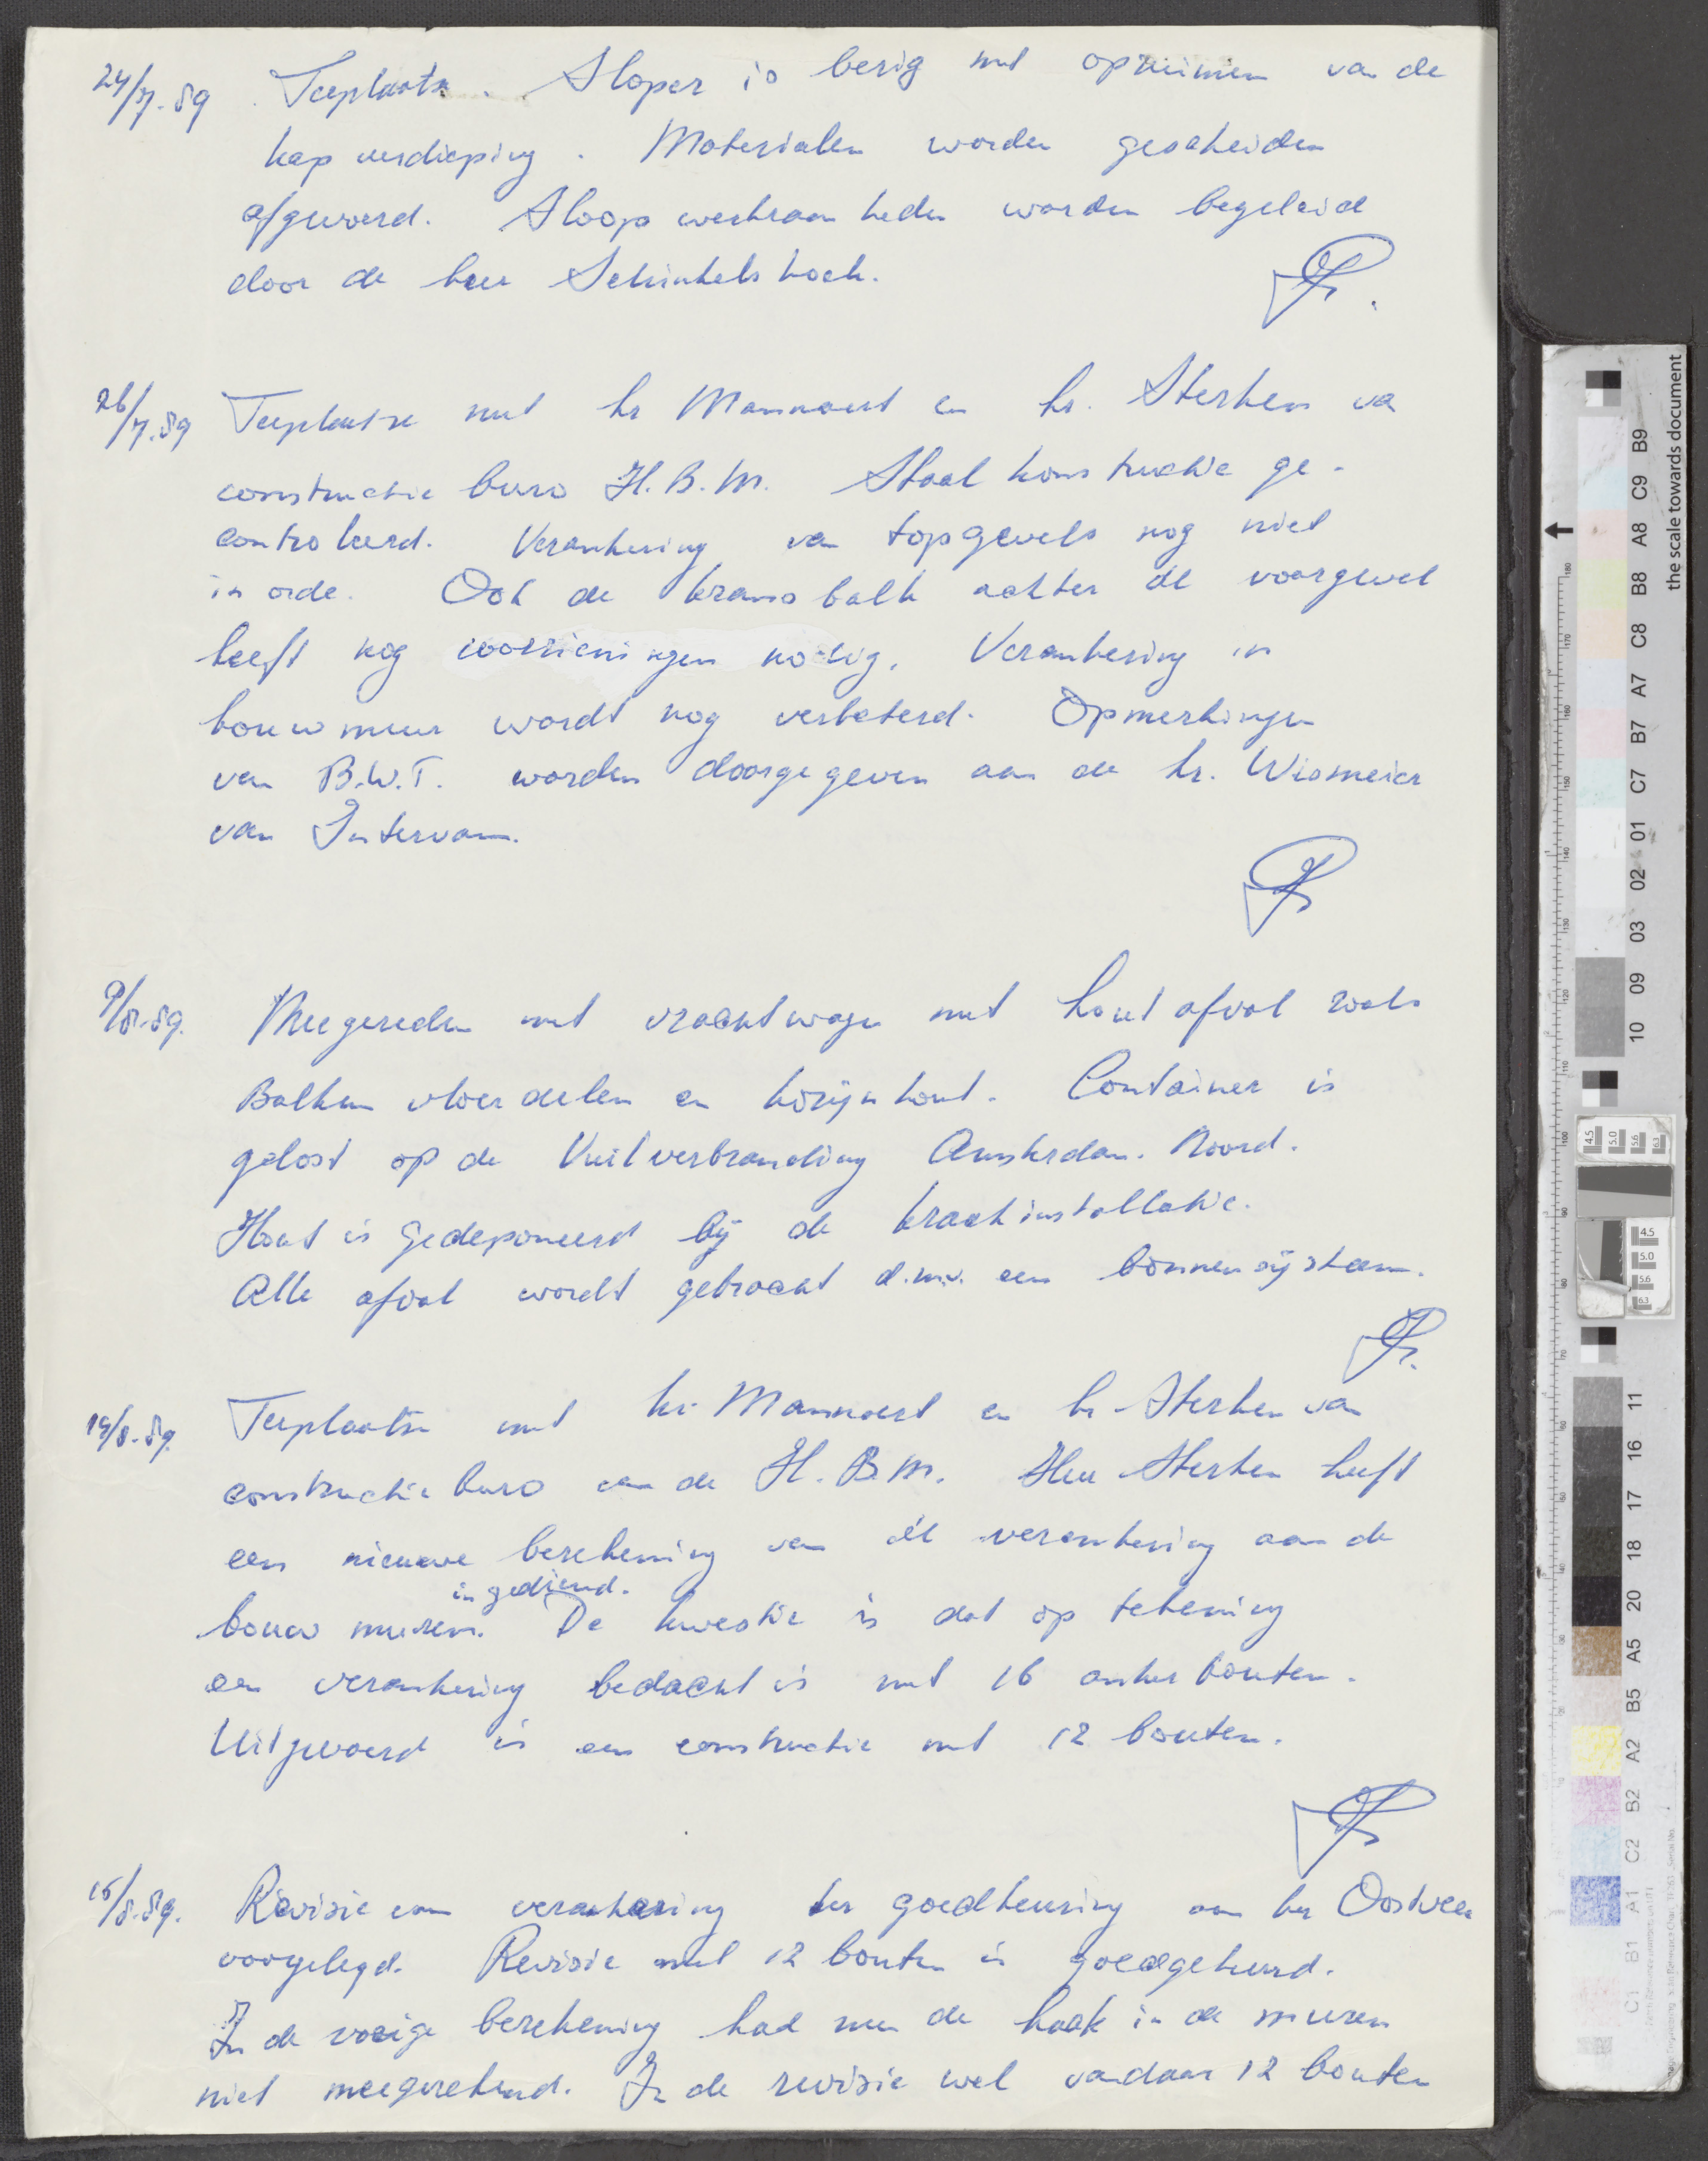 24/7.89 Terplaatse. Sloper is bezig met opruimen van de
kapverdieping. Materialen worden gescheiden
afgevoerd. Sloopwerkzaamheden worden begeleid
door de heer Schinkelshoek.
26/7.89 Terplaatse met hr Mannaert en hr. Sterken va
constructie buro H.B.M. Staalkonstructie ge-
controleerd. Verankering van topgevels nog niet
in orde. Ook de kransbalk achter de voorgevel
heeft nog voorzieningen nodig. Verankering in
bouwmuur wordt nog verbeterd. Opmerkingen
van B.W.T. worden doorgegeven aan de hr. Wismeier
van Intervam.
9/8.89. Meegereden met vrachtwagen met houtafval zoals
Balken vloerdelen en kozijnhout. Container is
gelost op de Vuilverbranding Amsterdam. Noord.
Hout is gedeponeerd bij de kraakinstallatie.
Alle afval wordt gebracht d.m.v. een bonnensysteem.
14/8.89. Terplaatse met hr. Mannaert en hr Sterken van
constructie buro van de H.B.M. Heer Sterken heeft
een nieuwe berekening van de verankering aan de
ingediend.
bouwmuren. De kwestie is dat op tekening
een verankering bedacht is met 16 ankerbouten.
Uitgevoerd is een constructie met 12 bouten.
15/8.89. Revisie van verankering ter goedkeuring aan hr Oostveen
voorgelegd. Revisie met 12 bouten is goedgekeurd.
In de vorige berekening had men de haak in de muren
niet meegerekend. In de revisie wel vandaar 12 bouten
the scale towards document
B9
C9
A8
B8
C8
A7
B7
C7
01
02
03
09
10
11
16
17
18
20
A5
B5
A2
B2
C2
A1
B1
C1
4.5
5.0
5.6
6.3
4.5
5.0
5.6
6.3